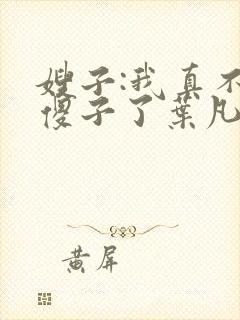 嫂子:我真不
傻子了葉凡
黄屏